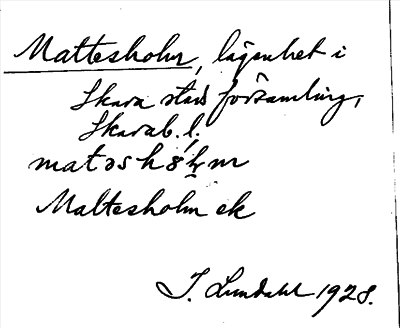 Mattesholm, lägenhet i
Skara stads församling,
Skarab. l.
Mattesholm ek
I. Lundahl 1928.